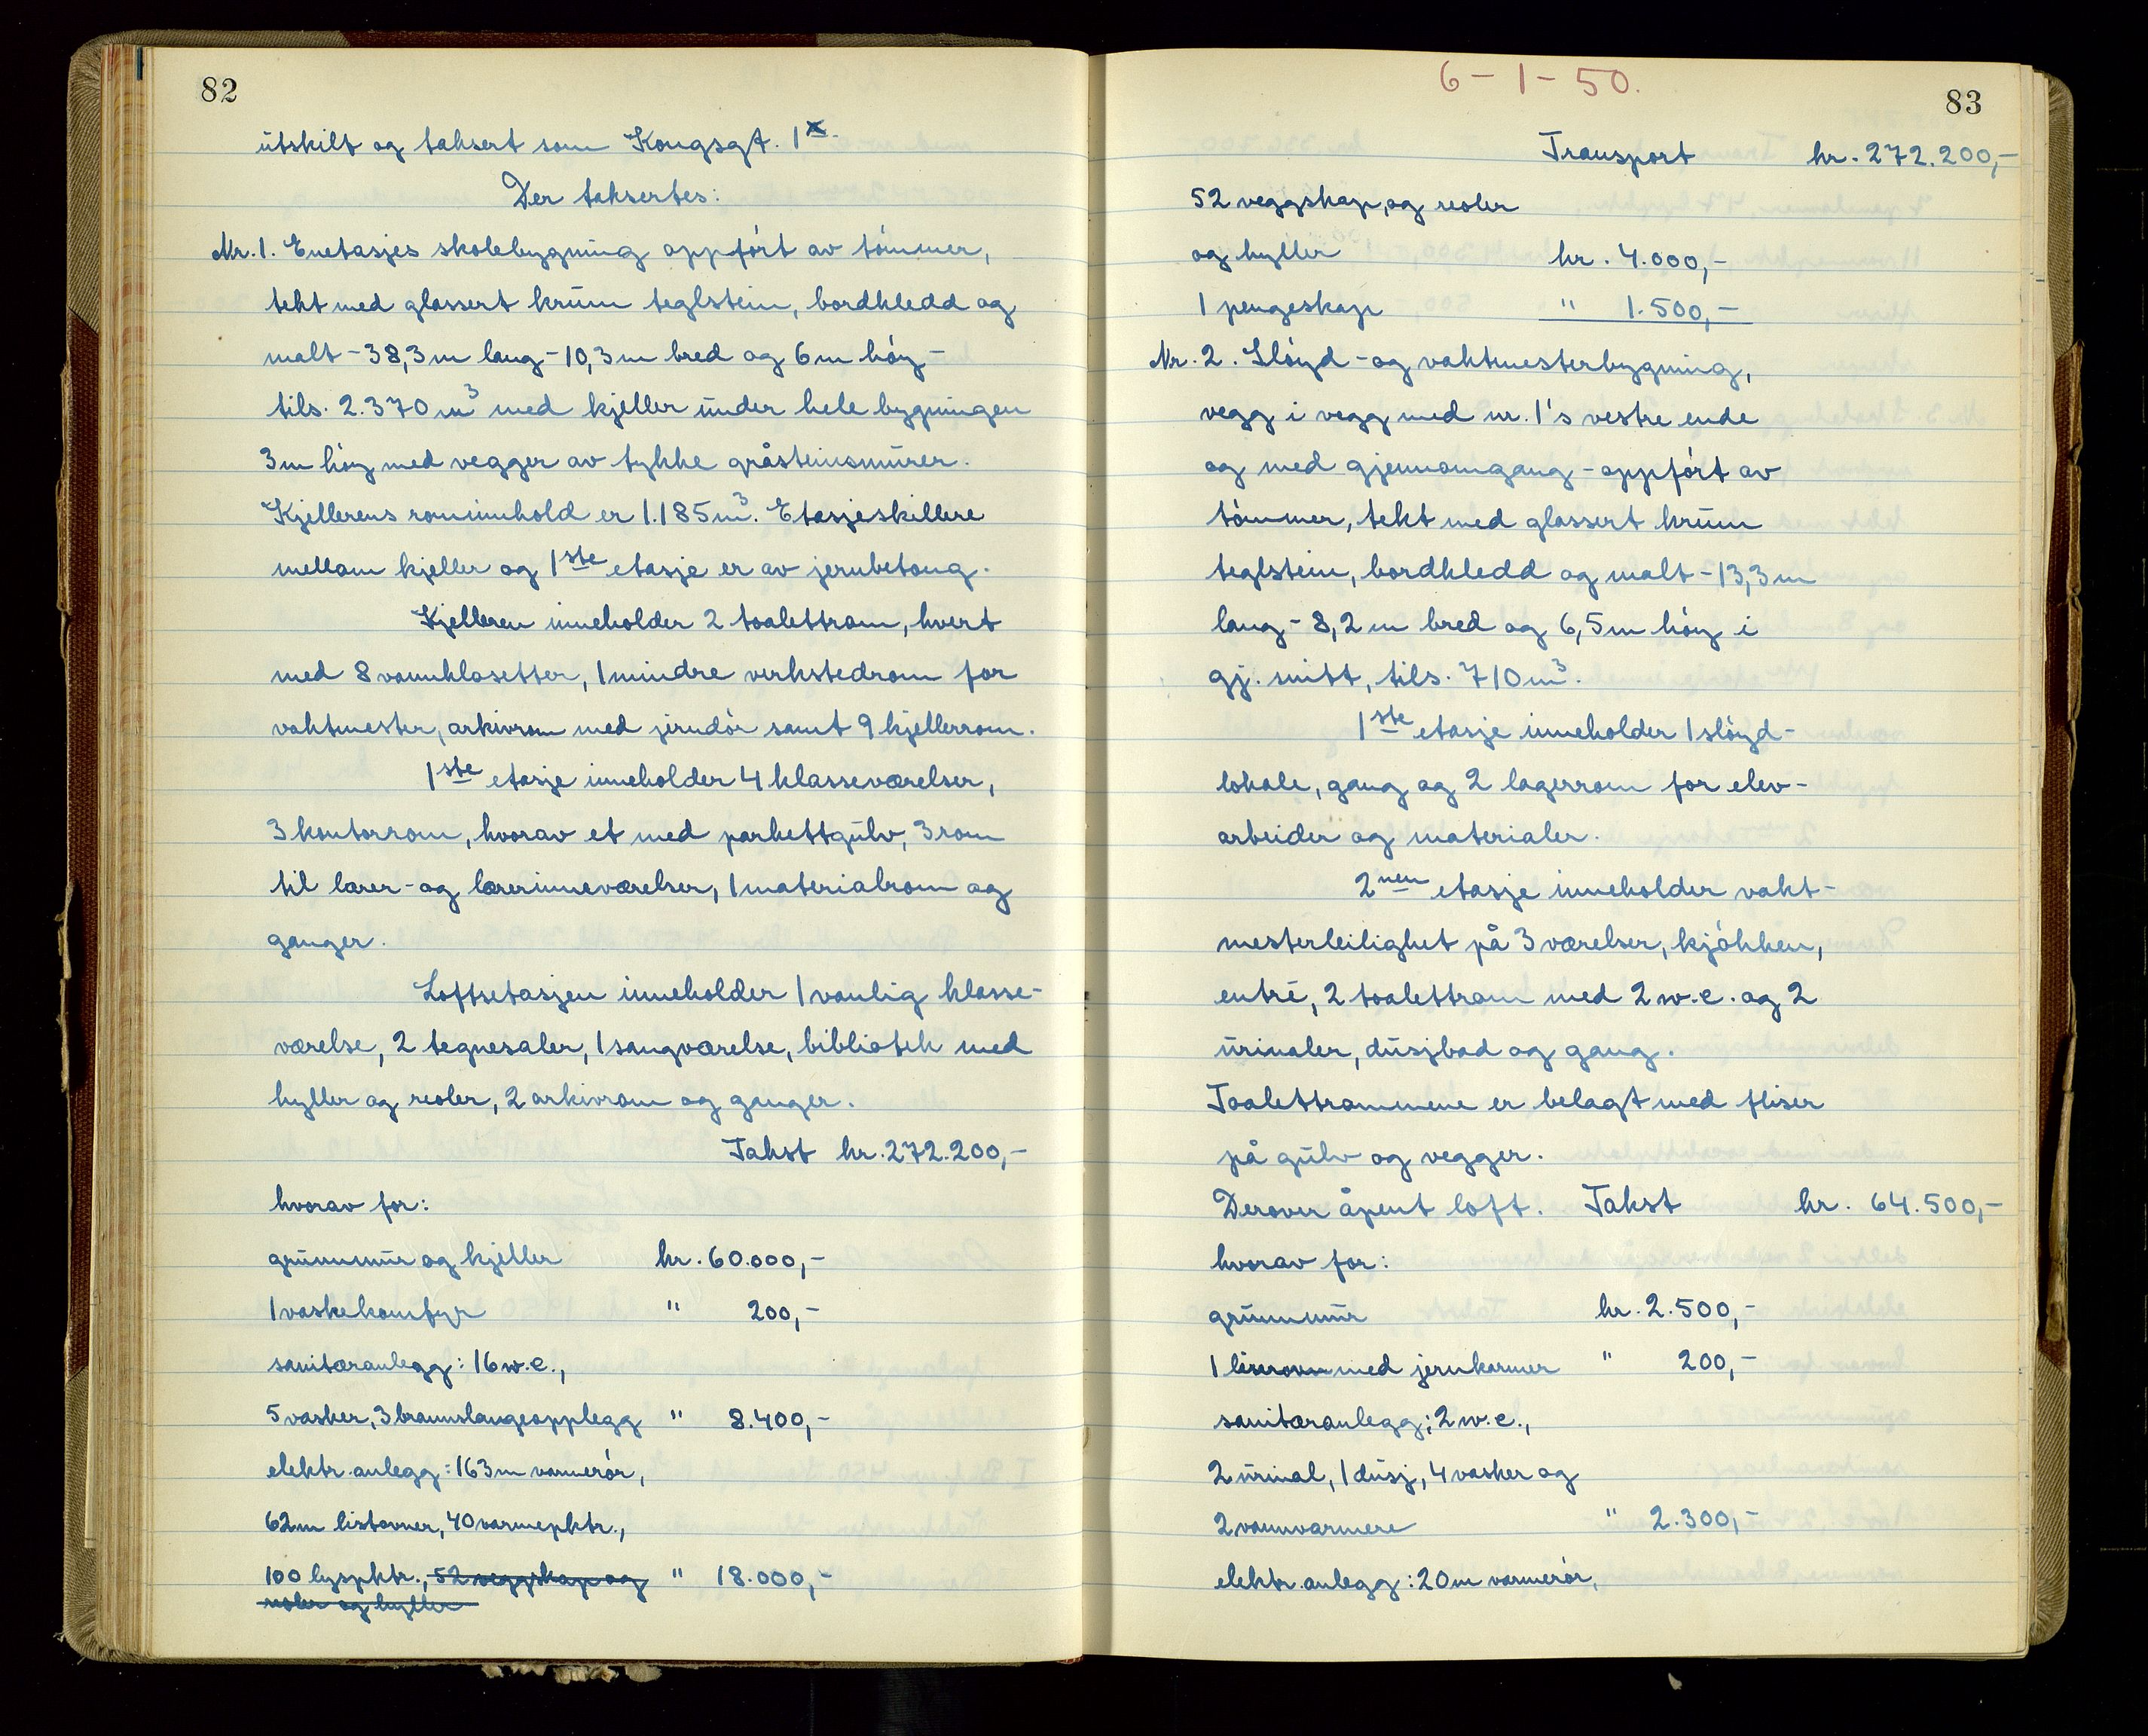 82
utskilt og taksert som Kongsgt. 1x.
Der taksertes:
Nr. 1. Enetasjes skolebygning oppført av tømmer,
tekt med glassert krum teglstein, bordkledd og
malt - 38,3 m lang - 10,3 m bred og 6 m høy -
tils. 2.370 m³ med kjeller under hele bygningen
3 m høy med vegger av tykke gråsteinsmurer.
Kjellerens rominnhold er 1.185 m³. Etasjeskillere
mellom kjeller og 1ste etasje er av jernbetong.
Kjelleren inneholder 2 toalettrom, hvert
med 8 vannklosetter, 1 mindre verkstedrom for
vaktmester, arkivrom med jerndør samt 9 kjellerrom.
1ste etasje inneholder 4 klasseværelser,
3 kontorrom, hvorav et med parkettgulv, 3 rom
til lærer- og lærerinneværelser, 1 materialrom og
ganger.
Loftsetasjen inneholder 1 vanlig klasse-
værelse, 2 tegnesaler, 1 sangværelse, bibliotek med
hyller og reoler, 2 arkivrom og ganger.
Takst kr. 272.200,-
hvorav for:
grunnmur og kjeller kr. 60.000,-
1 vaskekomfyr " 200,-
sanitæranlegg: 16 w.c.,
5 vasker, 3 brannslangeopplegg " 8.400,-
elektr. anlegg: 163 m varmerør,
62 m listovner, 40 varmepktr.,
100 lyspktr., 52 veggskap og " 18.000,-
reoler og hyller
6 - 1 - 50.
83
Transport kr. 272.200,-
52 veggskap, og reoler
og hyller kr. 4.000,-
1 pengeskap " 1.500,-
Nr. 2. Sløyd- og vaktmesterbygning,
vegg i vegg med nr. 1's vestre ende
og med gjennomgang - oppført av
tømmer, tekt med glassert krum
teglstein, bordkledd og malt - 13,3 m
lang - 8,2 m bred og 6,5 m høy i
gj. snitt, tils. 710 m³.
1ste etasje inneholder 1 sløyd-
lokale, gang og 2 lagerrom for elev-
arbeider og materialer.
2nen etasje inneholder vakt-
mesterleilighet på 3 værelser, kjøkken,
entré, 2 toalettrom med 2 w.c. og 2
urinaler, dusjbad og gang.
Toalettrommene er belagt med fliser
på gulv og vegger.
Derover åpent loft. Takst kr. 64.500,-
hvorav for:
grunnmur kr. 2.500,-
1 limovn med jernkarmer " 200,-
sanitæranlegg; 2 w.c.,
2 urinal, 1 dusj, 4 vasker og
2 vannvarmere " 2.300,-
elektr. anlegg: 20 m varmerør,